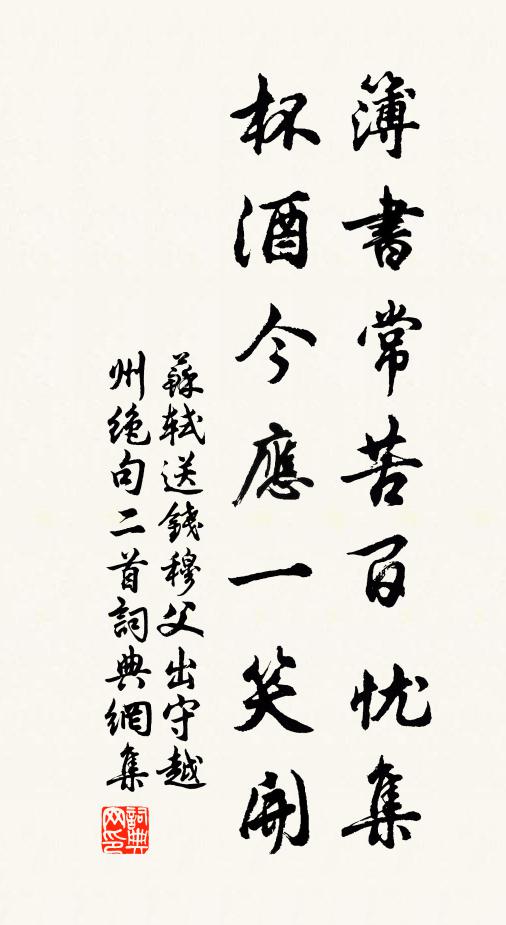 簿書常苦百忧集
杯酒今應一笑開
蘇軾送錢穆父出守越
州绝句二首詞典網集
詞典
网印